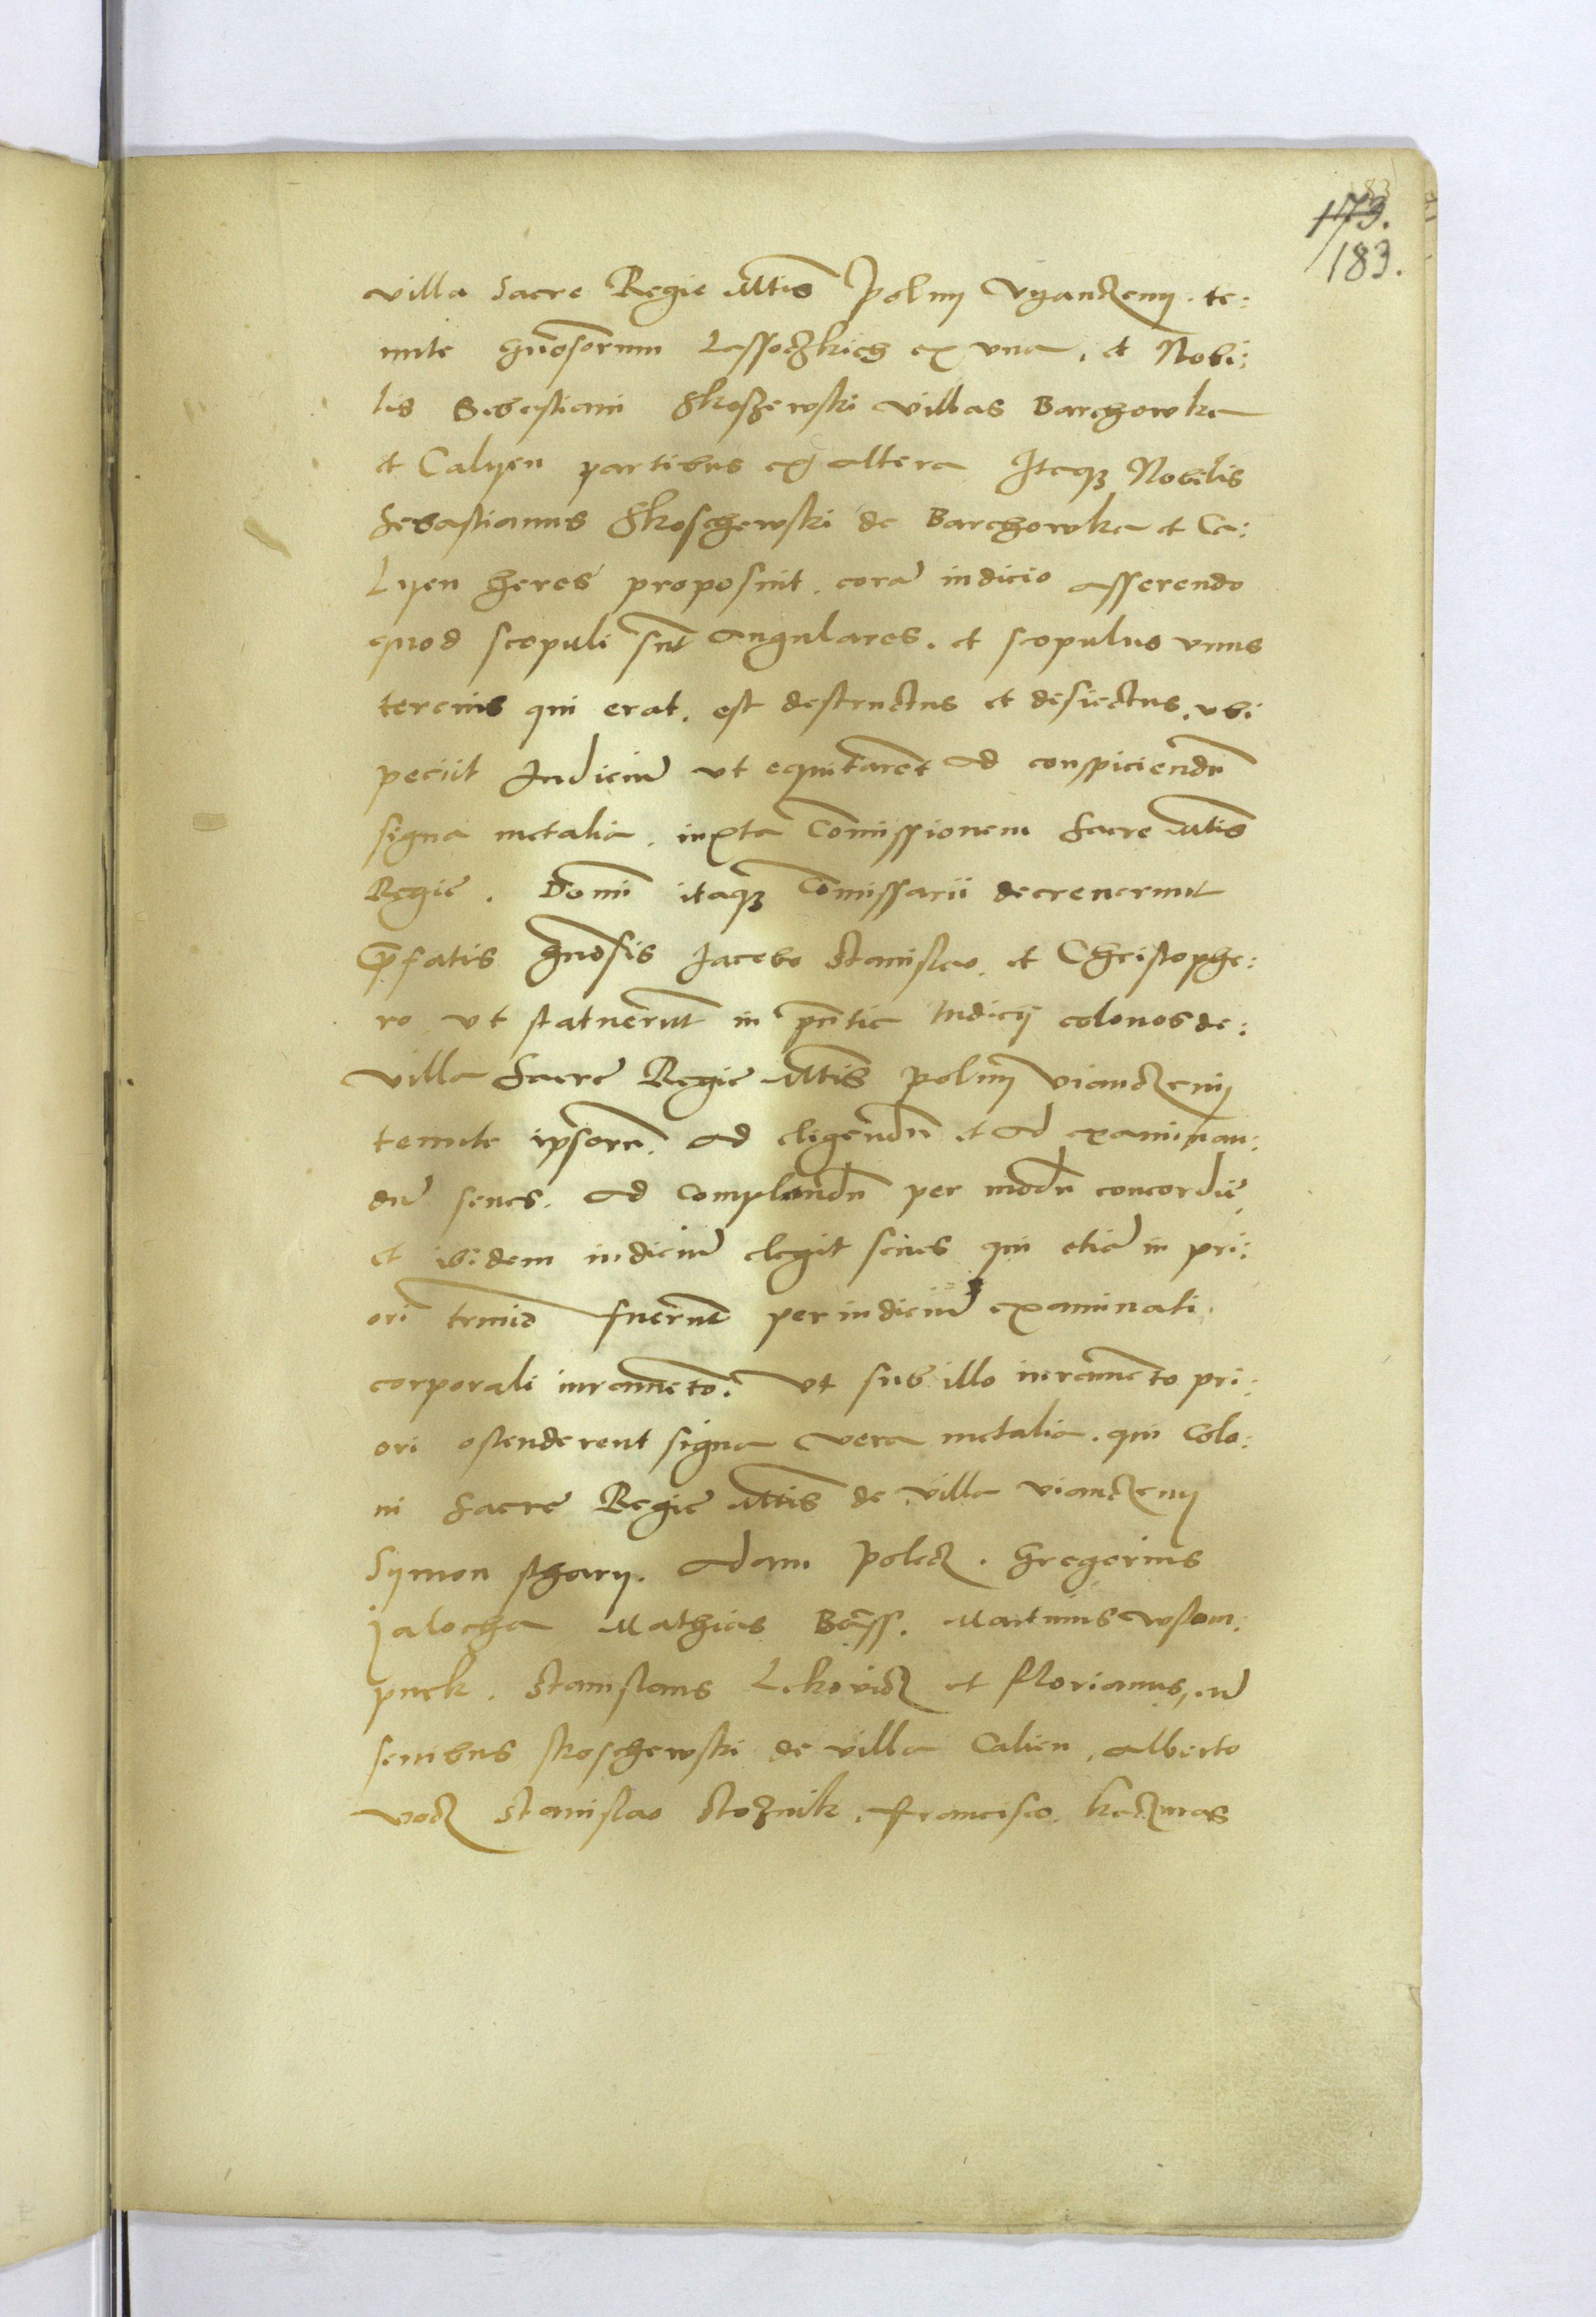 83
173.
183.
villa Sacre Regie Mtis Polnÿ Vyanczenÿ. te:
nute Gnosorum Lassoczkich ex vna, et Nobi:
lis Sebestiani Skoszewski villas Barchowka
et Calyen partibus ex altera Itaq3 Nobilis
Sebastianus Skoschewski de Barchowka et Ca:
Lyen heres proposuit. cora iudicio asserendo
quod scopuli sut angulares. et scopulus vnus
tercius qui erat. est destructus et desiectus. vbi
peciit Iudiciu vt equitaret ad conspiciendu
signa metalia. iuxta Comissionem Sacre Mtis
Regie. Domi itaq3 Comissarii decreuerunt
pfatis Gnosis Jacobo Stanislao. et Christopho:
ro vt statuerut in pntia Iudicÿ colonos de:
villa Sacre Regie Mtis polnÿ vianczenÿ
tenute ipsoru. ad eligendu et ad examinan:
du senes. ad Complandu per modu concordie
et ibidem iudiciu elegit senes qui etia in pri:
ori trmio fuerunt per iudiciu examinati.
corporali iurameto. vt sub illo iuramento pri:
ori ostenderent signa vera metalia. qui Colo:
ni Sacre Regie Mtis de villa vianczenÿ
Sÿmon starÿ. Adam Polecz. Gregorius
Jalocha Mathias Bass. Martinus wstom:
puek. Stanislaus Lekovicz et Florianus, cu
senibus skoschewski de villa Calien, Alberto
vocz Stanislao Stoznik. Francisco. keczmas